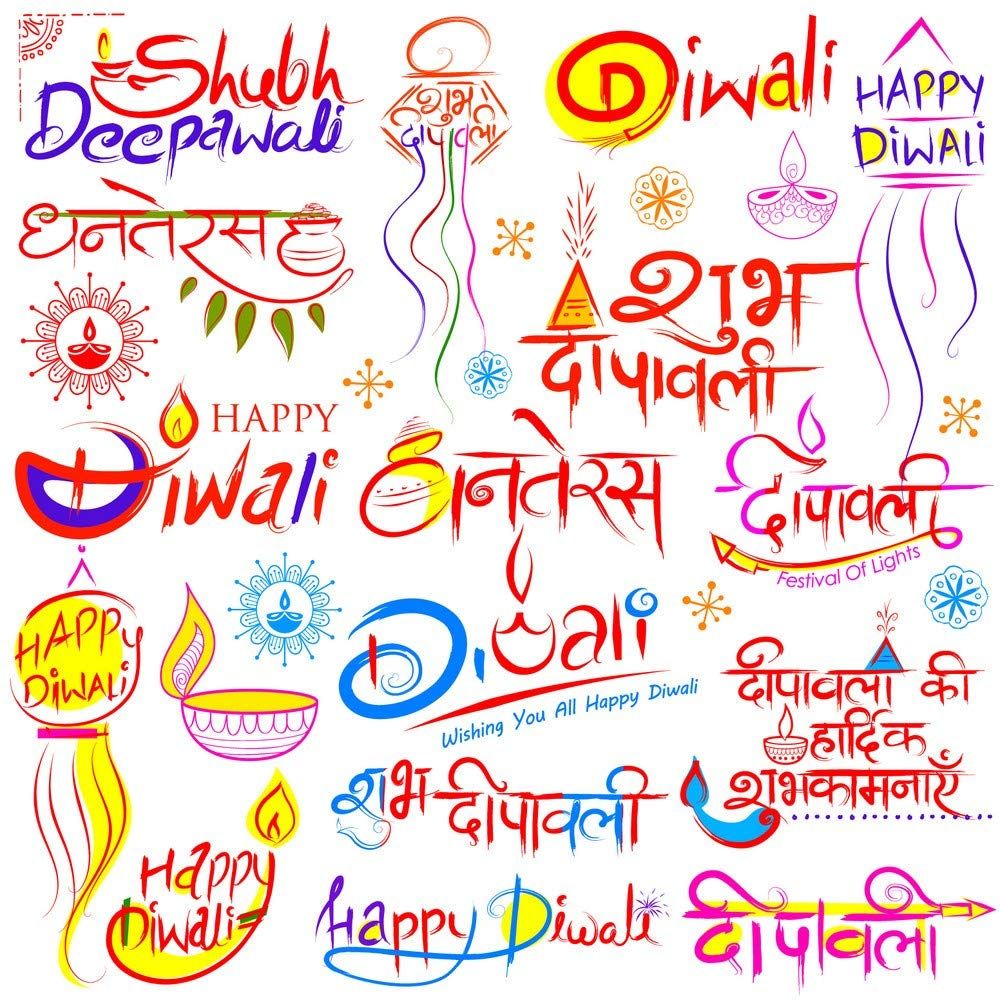 Shubh
Deepawali
शुभ
दीपावली
Diwali
HAPPY
DIWALI
धनतेरस
शुभ
दीपावली
HAPPY
Diwali
धनतेरस
दीपावली
Festival Of Lights
HAPPY
DIWALI
Diwali
Wishing You All Happy Diwali
दीपावली की
हार्दिक
शुभकामनाएँ
शुभ दीपावली
Happy
Diwali
Happy Diwali
दीपावली